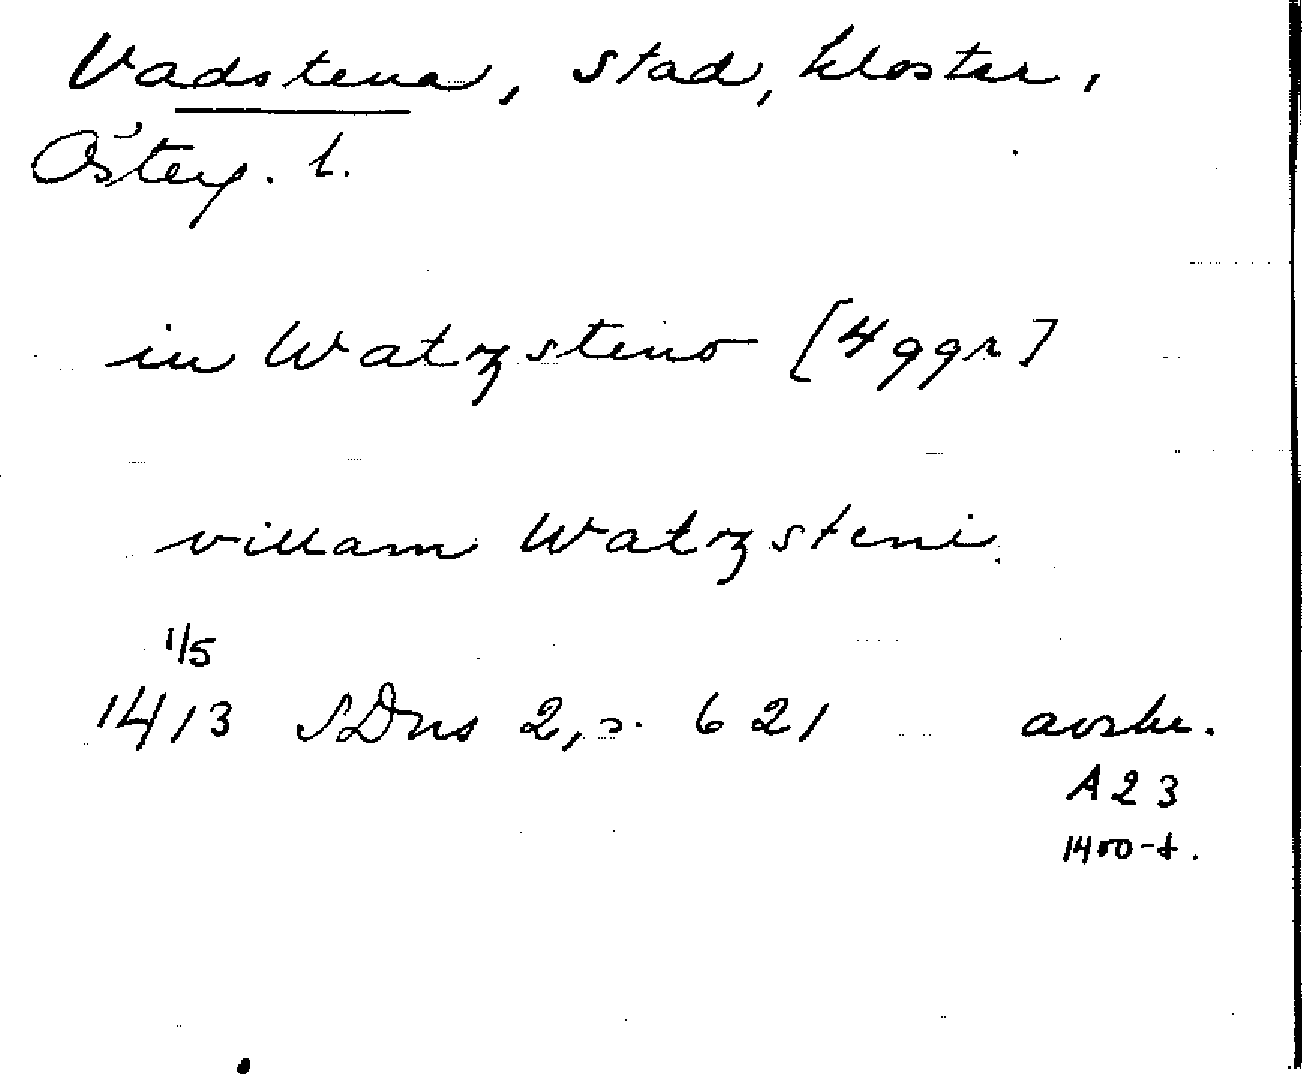 Vadstena, stad, kloster,
Österg. l.
in Watzsteno [4 ggr]
villam Watzsteni
1/5
1413 SDns 2, s. 621 avskr.
A 23
1400-t.